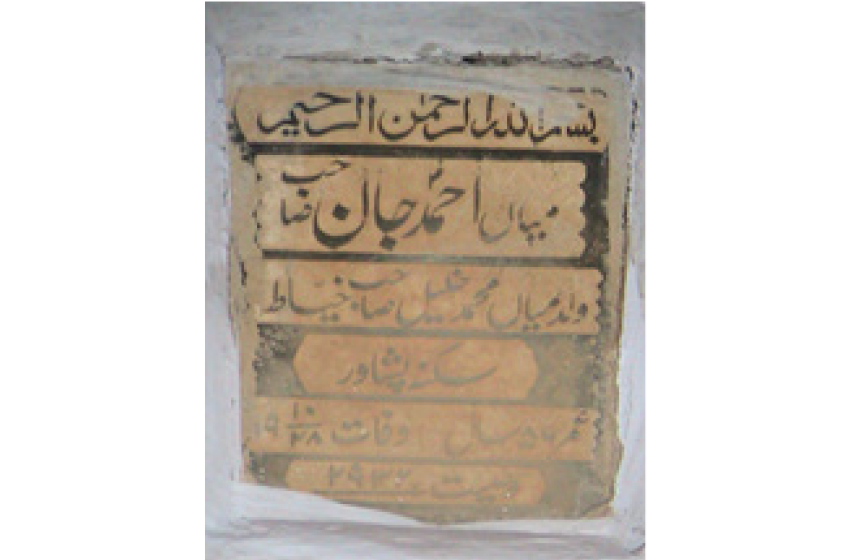 بسم اللہ الرحمٰن الرحیم
میاں احمد جان صاحب
ولد میاں محمد خلیل صاحب خیاط
سکنہ پشاور
عمر ۵۶ سال وفات ۱۰/۲۸
وصیت ۲۹۳۲